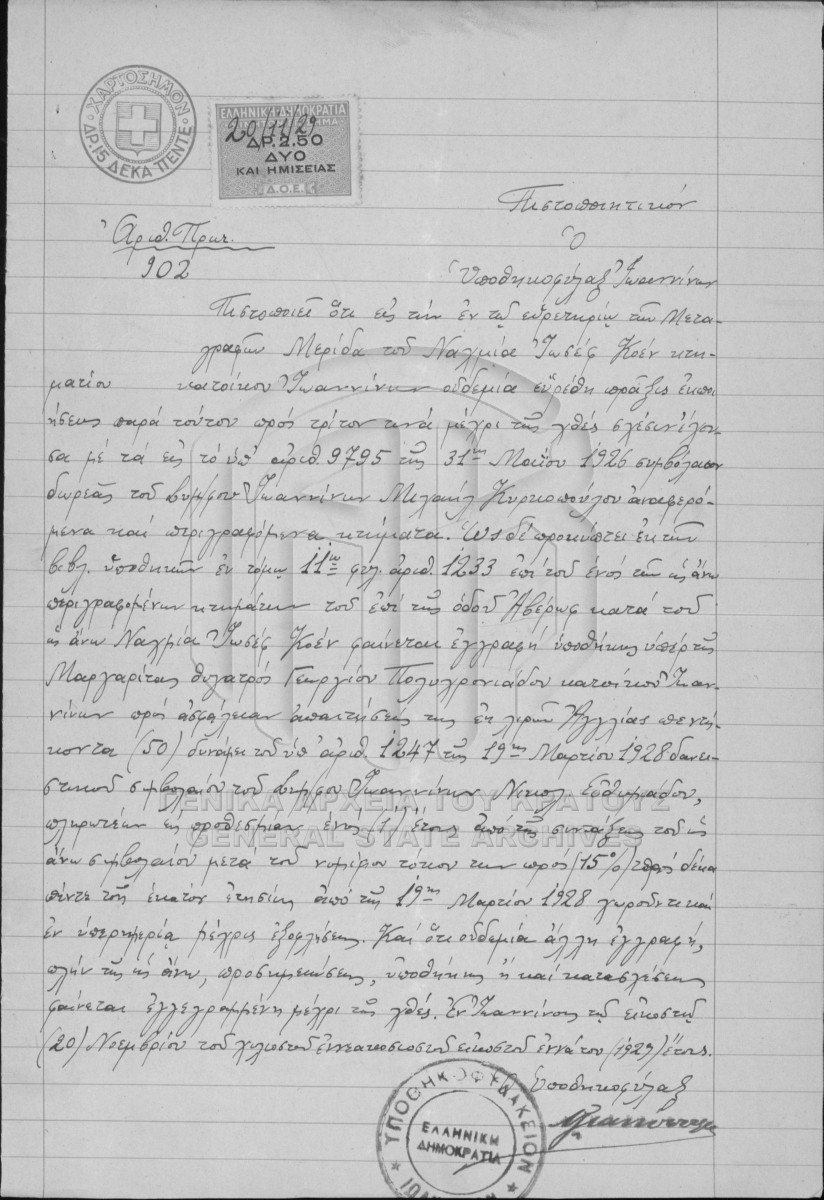 ΧΑΡΤΟΣΗΜΟΝ
ΔΡ. 15 ΔΕΚΑ ΠΕΝΤΕ
ΕΛΛΗΝΙΚΗ ΔΗΜΟΚΡΑΤΙΑ
20/11/29
ΔΡ. 2.50
ΔΥΟ
ΚΑΙ ΗΜΙΣΕΙΑΣ
Δ.Ο.Ε.
Πιστοποιητικόν
Ἀριθ. Πρωτ.
902
Ὁ
Ὑποθηκοφύλαξ Ἰωαννίνων
Πιστοποιεῖ ὅτι εἰς τὴν ἐν τῷ εὑρετηρίῳ τῶν Μετα-
γραφῶν Μερίδα τοῦ Ναχμία Ἰωσὲφ Κοέν κτη-
ματίου κατοίκου Ἰωαννίνων οὐδεμία εὑρέθη πρᾶξις ἐκποι
ήσεως παρὰ τούτου πρὸς τρίτον τινὰ μέχρι τῆς χθὲς
μὲ τὰ εἰς τὸ ὑπ' ἀριθ. 9795 τῆς 31ης Μαΐου 1926 συμβόλαιον
δωρεᾶς τοῦ συμ/φου Ἰωαννίνων Μιχαὴλ Κυρκοπούλου ἀναφερό-
μενα καὶ περιγραφόμενα κτήματα. Ὡς δὲ προκύπτει ἐκ τῶν
βιβλ. ὑποθηκῶν ἐν τόμῳ 11ῳ φυλ. ἀριθ. 1233 ἐπὶ τοῦ ἑνὸς τῶν ὡς ἄνω
περιγραφομένων κτημάτων τοῦ ἐπὶ τῆς ὁδοῦ Ἀβέρωφ κατὰ τοῦ
ὡς ἄνω Ναχμία Ἰωσὲφ Κοέν φαίνεται ἐγγραφὴ ὑποθήκης ὑπὲρ τῆς
Μαργαρίτας θυγατρὸς Γεωργίου Πολυχρονιάδου κατοίκου Ἰωαν-
νίνων πρὸς ἀσφάλειαν ἀπαιτήσεώς της ἐκ λιρῶν Ἀγγλίας πεντή-
κοντα (50) δυνάμει τοῦ ὑπ' ἀριθ. 1247 τῆς 19ης Μαρτίου 1928 δανει-
στικοῦ συμβολαίου τοῦ συμ/φου Ἰωαννίνων Νικολ. Εὐθυμιάδου,
πληρωτέων εἰς προθεσμίαν ἑνὸς (1) ἔτους ἀπὸ τῆς συντάξεως τοῦ ὡς
ἄνω συμβολαίου μετὰ τοῦ νομίμου τόκου των πρὸς (15%) πρὸς δέκα
πέντε τοῖς ἑκατὸν ἐτησίως ἀπὸ τῆς 19ης Μαρτίου 1928 χωροῦντι καὶ
ἐν ὑπερημερίᾳ μέχρις ἐξοφλήσεως. Καὶ ὅτι οὐδεμία ἄλλη ἐγγραφή,
πλὴν τῆς ὡς ἄνω, προσημειώσεως, ὑποθήκης ἢ καὶ κατασχέσεως
φαίνεται ἐγγεγραμμένη μέχρι τῆς χθές. Ἐν Ἰωαννίνοις τῇ εἰκοστῇ
(20) Νοεμβρίου τοῦ χιλιοστοῦ ἐννεακοσιοστοῦ εἰκοστοῦ ἐννάτου (1929) ἔτους.
Ὁ Ὑποθηκοφύλαξ
ΥΠΟΘΗΚΟΦΥΛΑΚΕΙΟΝ
ΕΛΛΗΝΙΚΗ
ΔΗΜΟΚΡΑΤΙΑ
ΓΕΝΙΚΑ ΑΡΧΕΙΑ ΤΟΥ ΚΡΑΤΟΥΣ
GENERAL STATE ARCHIVES